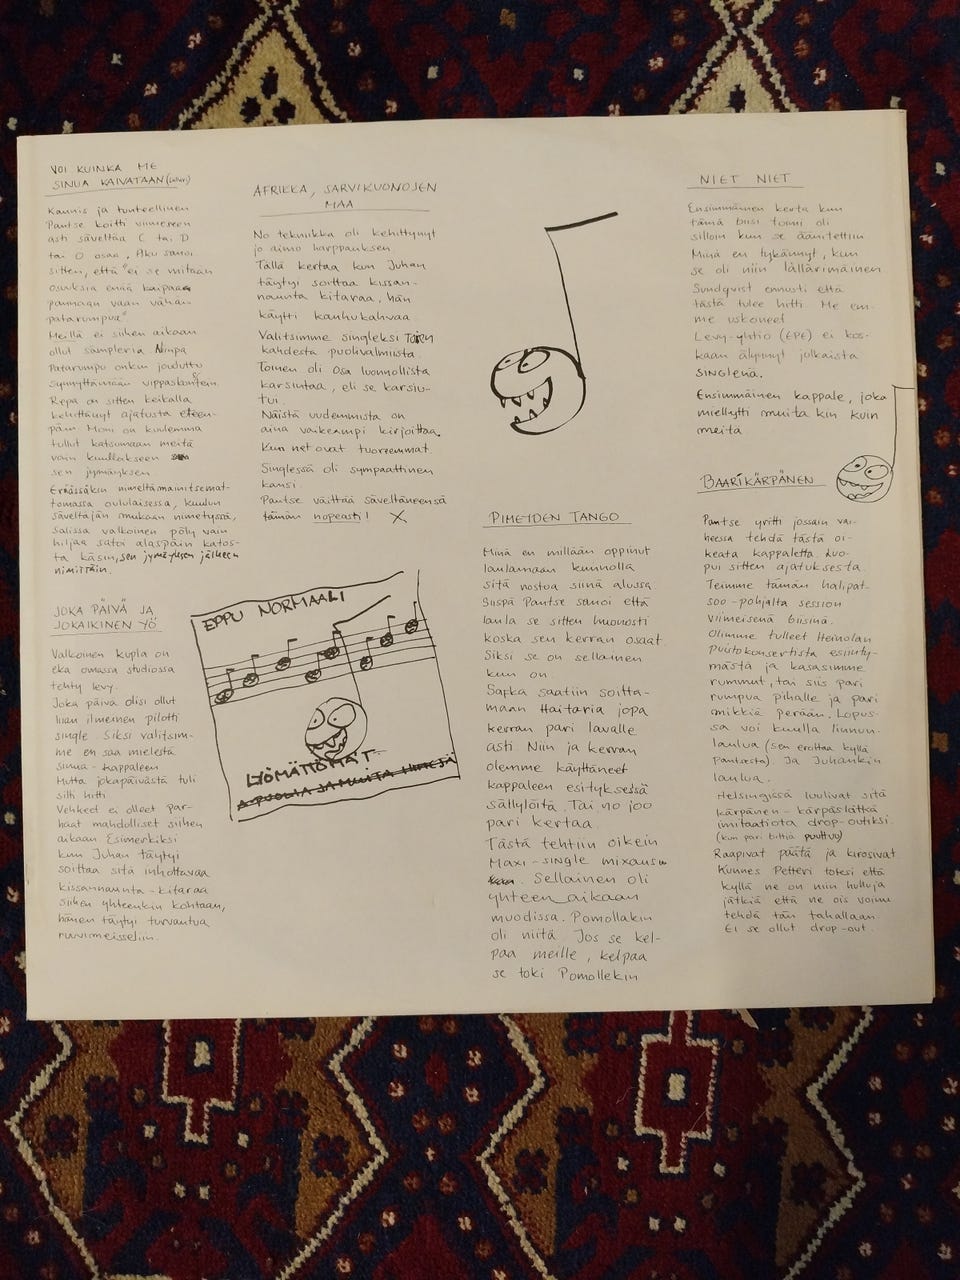 VOI KUINKA ME
SINUA KAIVATAAN
Kaunis ja tunteellinen
Pantse koitti viimeseen
asti säveltää C tai D
tai O osaa, Aku sanoi
sitten, että "ei se mitään
osuuksia enää kaipaa
pannaan vaan vähän
patarumpua"
Meillä ei siihen aikaan
ollut sampleria. Niinpä
Patarumpu onkin jouduttu
synnyttämään vippaskonstein.
Repa on sitten keikalla
kehittänyt ajatusta eteen-
päin. Moni on kuulemma
tullut katsomaan meitä
vain kuullakseen
sen jymäyksen
Eräässäkin nimeltämainitsemat-
tomassa oululaisessa, kuulun
säveltäjän mukaan nimetyssä,
salissa valkoinen pöly vain
hiljaa satoi alaspäin katos-
ta käsin, sen jymäyksen jälkeen
nimittäin.
JOKA PÄIVÄ JA
JOKAIKINEN YÖ
Valkoinen kupla on
eka omassa studiossa
tehty levy.
Joka päivä olisi ollut
liian ilmeinen pilotti
single. Siksi valitsim-
me en saa mielestä
sinua - kappaleen
Mutta jokapäivästä tuli
silti hitti
Vehkeet ei olleet par-
haat mahdolliset siihen
aikaan Esimerkiksi
kun Juhan täytyi
soittaa sitä inhottavaa
kissannaunta-kitaraa
siihen yhteenkin kohtaan,
hänen täytyi turvautua
ruuvimeisseliin.
AFRIKKA, SARVIKUONOJEN
MAA
No tekniikka oli kehittynyt
jo aimo harppauksen
Tällä kertaa kun Juhan
täytyi soittaa kissan-
naunta kitaraa, hän
käytti kauhukahvaa
Valitsimme singleksi Toisen
kahdesta puolivalmiista.
Toinen oli Osa luonnollista
karsintaa, eli se karsiu-
tui.
Näistä uudemmista on
aina vaikeampi kirjoittaa.
Kun net ovat tuoreemmat.
Singlessä oli sympaattinen
kansi.
Pantse väittää säveltäneensä
tämän nopeasti! X
EPPU NORMAALI
LYÖMÄTTÖMÄT
A-PUOLIA JA MUITA HITTEJÄ
PIMEYDEN TANGO
Minä en millään oppinut
laulamaan kunnolla
sitä nostoa siinä alussa
Siispä Pantse sanoi että
laula se sitten huonosti
koska sen kerran osaat.
Siksi se on sellainen
kuin on.
Safka saatiin soitta-
maan Haitaria jopa
kerran pari lavalle
asti Niin ja kerran
olemme käyttäneet
kappaleen esityksessä
säflyföitä. Tai no joo
pari kertaa.
Tästä tehtiin oikein
Maxi-single mixaus
Sellainen oli
yhteen aikaan
muodissa. Pomollakin
oli niitä. Jos se kel-
paa meille, kelpaa
se toki Pomollekin
NIET NIET
Ensimmäinen kerta kun
tämä biisi toimi oli
silloin kun se äänitettiin
Minä en tykännyt, kun
se oli niin lällärimäinen
Sundqvist ennusti että
tästä tulee hitti. Me em-
me uskoneet
Levy-yhtiö (EPE) ei kos-
kaan älynnyt julkaista
SINGLENÄ.
Ensimmäinen kappale, joka
miellytti muita kin kuin
meitä
BAARIKÄRPÄNEN
Pantse yritti jossain vai-
heessa tehdä tästä oi-
keata kappaletta. Luo-
pui sitten ajatuksesta.
Teimme tämän halipat-
soo-pohjalta session
viimeisenä biisinä.
Olimme tulleet Heinolan
Puistokonsertista esiinty-
mästä ja kasasimme
rummut, tai siis pari
rumpua pihalle ja pari
mikkiä perään. Lopus-
sa voi kuulla linnun-
laulua (sen erottaa kyllä
Pantesta). Ja Juhankin
laulua.
Helsingissä luulivat sitä
kärpänen-kärpäslätkä
imitaatiota drop-outiksi.
(kun pari bittiä puuttuu)
Raapivat päätä ja kirosivat
Kunnes Petteri totesi että
kyllä ne on niin hulluja
jätkiä että ne ois voinu
tehdä tän tahallaan.
Ei se ollut drop-out.